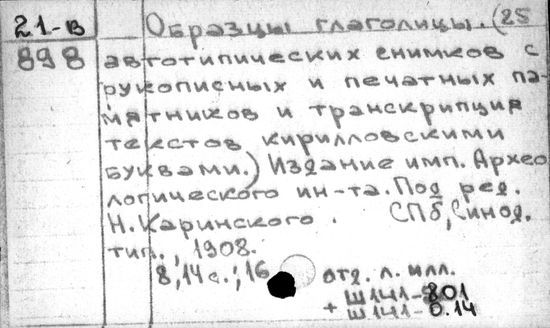 21-в Образцы глаголицы. (25
898 автотипических снимков с
рукописных и печатных па-
мятников и транскрипция
текстов кирилловскими
буквами.) Издание имп. Архео
логического ин-та. Под ред.
Н. Каринского. СПб, Синод.
тип., 1908.
8,14 с.; 16 отд. л. илл.
Ш141-801
+ Ш141-0.14